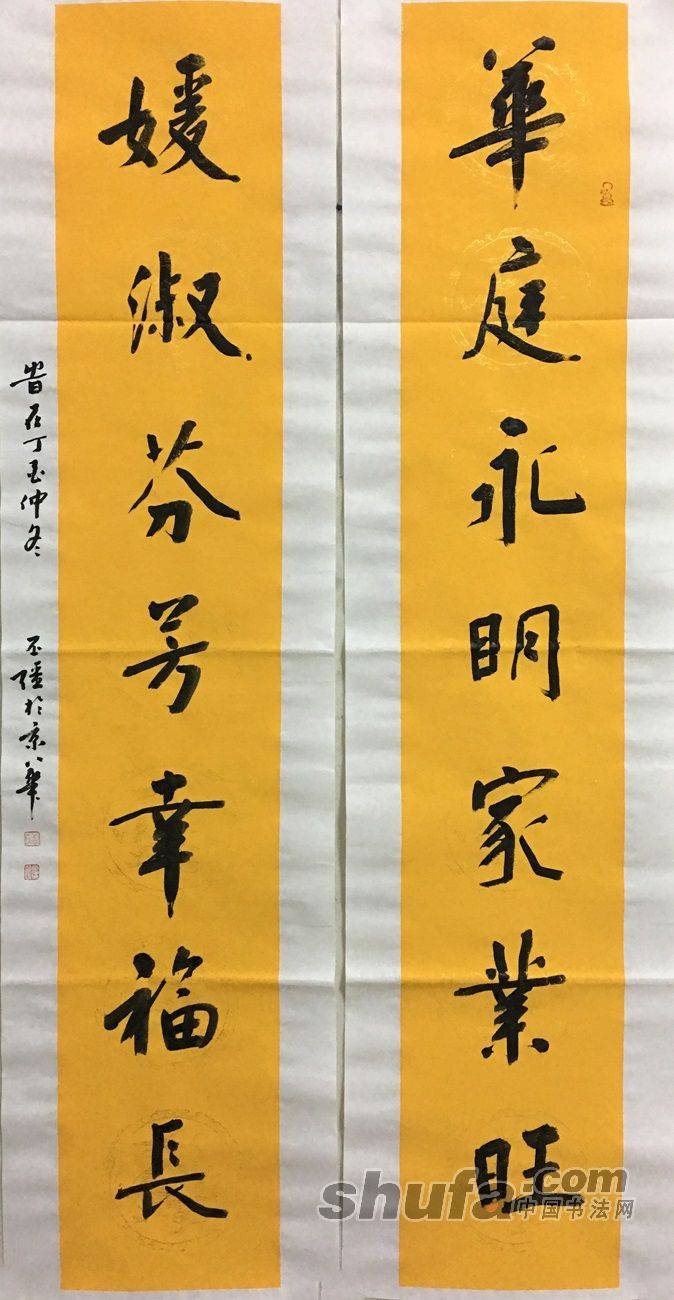 華庭永明家業旺
媛淑芬芳幸福長
時在丁酉仲冬
石疆於京華
shufa.com
中国书法网